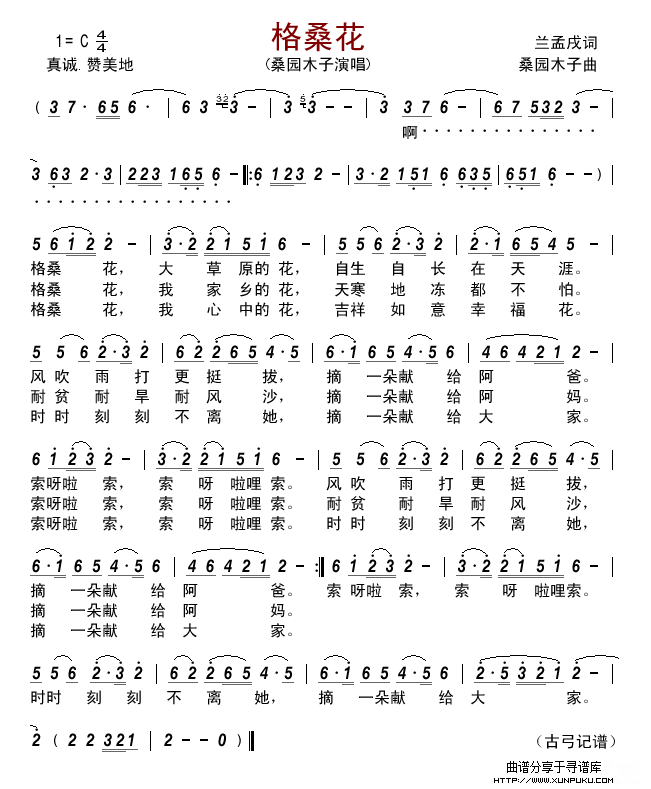 格桑花
1= C 4/4
兰孟戌词
真诚. 赞美地
(桑园木子演唱)
桑园木子曲
( 3 7· 6 5 6· - | 6 3 3 - | 3 3 - | 3 3 7 6 - | 6 7 5 3 2 3 - |
啊···············
3 6 3 2·3 | 2 2 3 1 6 5 6 - ‖: 6 1 2 3 2 - | 3·2 1 5 1 6 6 3 5 | 6 5 1 6 - - ) |
5 6 1 2 2 - | 3·2 2 1 5 1 6 - | 5 5 6 2·3 2 | 2·1 6 5 4 5 - |
格桑 花， 大 草 原的 花， 自生 自 长 在 天 涯。
格桑 花， 我 家 乡的 花， 天寒 地 冻 都 不 怕。
格桑 花， 我 心 中的 花， 吉祥 如 意 幸 福 花。
5 5 6 2·3 2 | 6 2 2 6 5 4·5 | 6·1 6 5 4·5 6 | 4 6 4 2 1 2 - |
风 吹 雨 打 更 挺 拔， 摘 一朵献 给 阿 爸。
耐 贫 耐 旱 耐 风 沙， 摘 一朵献 给 阿 妈。
时 时 刻 刻 不 离 她， 摘 一朵献 给 大 家。
6 1 2 3 2 - | 3·2 2 1 5 1 6 - | 5 5 6 2·3 2 | 6 2 2 6 5 4·5 |
索呀啦 索， 索 呀 啦哩 索。 风 吹 雨 打 更 挺 拔，
索呀啦 索， 索 呀 啦哩 索。 耐 贫 耐 旱 耐 风 沙，
索呀啦 索， 索 呀 啦哩 索。 时 时 刻 刻 不 离 她，
6·1 6 5 4·5 6 | 4 6 4 2 1 2 - :‖ 6 1 2 3 2 - | 3·2 2 1 5 1 6 - |
摘 一朵献 给 阿 爸。 索 呀啦 索， 索 呀 啦哩索。
摘 一朵献 给 阿 妈。
摘 一朵献 给 大 家。
5 5 6 2·3 2 | 6 2 2 6 5 4·5 | 6·1 6 5 4·5 6 | 5·4 3 2 1 2 - |
时时 刻 刻 不 离 她， 摘 一朵献 给 大 家。
2 ( 2 2 3 2 1 | 2 - - 0 ) ‖
（古弓记谱）
曲谱分享于寻谱库
HTTP://WWW.XUNPUKU.COM